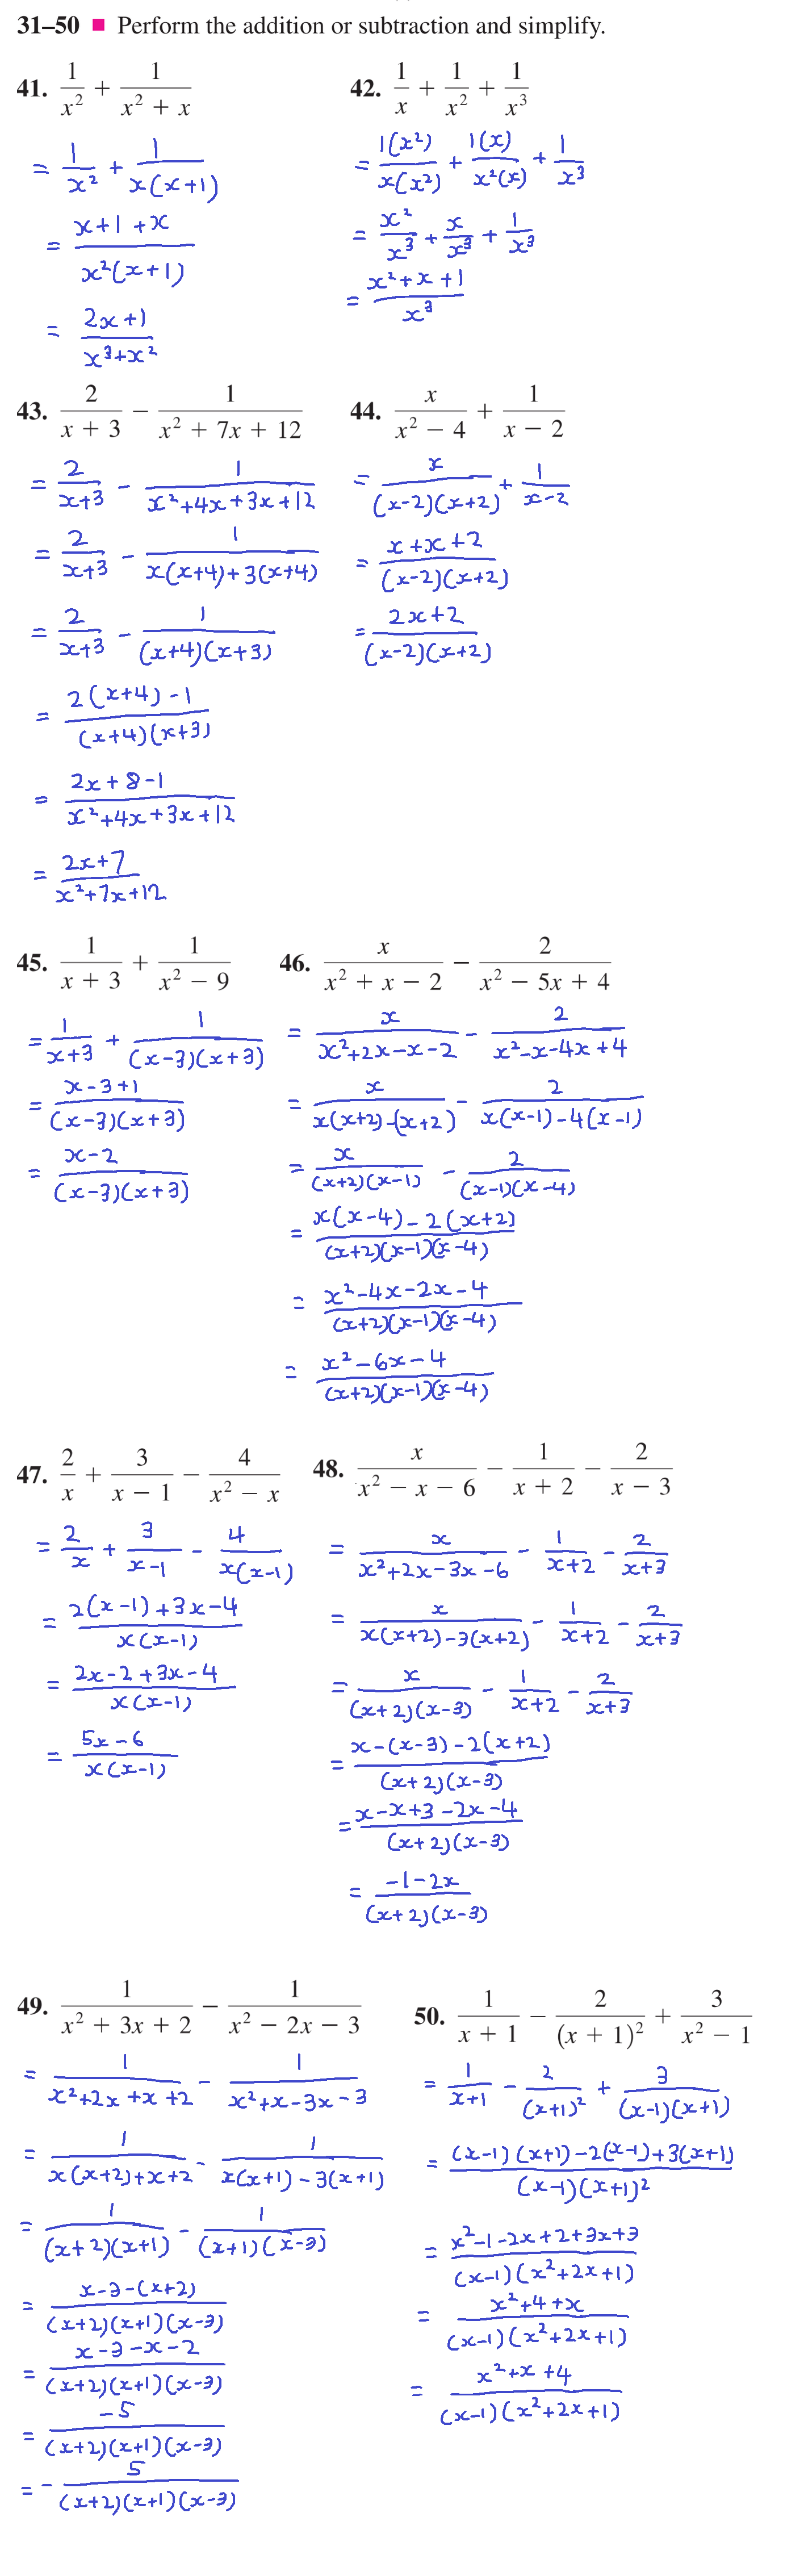 31–50 ■ Perform the addition or subtraction and simplify.
41. 1/x² + 1/(x² + x)
= 1/x² + 1/(x(x+1))
= (x+1+x)/(x²(x+1))
= (2x+1)/(x³+x²)
42. 1/x + 1/x² + 1/x³
= 1(x²)/(x(x²)) + 1(x)/(x²(x)) + 1/x³
= x²/x³ + x/x³ + 1/x³
= (x²+x+1)/x³
43. 2/(x + 3) − 1/(x² + 7x + 12)
= 2/(x+3) − 1/(x²+4x+3x+12)
= 2/(x+3) − 1/(x(x+4)+3(x+4))
= 2/(x+3) − 1/((x+4)(x+3))
= (2(x+4)-1)/((x+4)(x+3))
= (2x+8-1)/(x²+4x+3x+12)
= (2x+7)/(x²+7x+12)
44. x/(x² − 4) + 1/(x − 2)
= x/((x-2)(x+2)) + 1/(x-2)
= (x+x+2)/((x-2)(x+2))
= (2x+2)/((x-2)(x+2))
45. 1/(x + 3) + 1/(x² − 9)
= 1/(x+3) + 1/((x-3)(x+3))
= (x-3+1)/((x-3)(x+3))
= (x-2)/((x-3)(x+3))
46. x/(x² + x − 2) − 2/(x² − 5x + 4)
= x/(x²+2x-x-2) − 2/(x²-x-4x+4)
= x/(x(x+2)-(x+2)) − 2/(x(x-1)-4(x-1))
= x/((x+2)(x-1)) − 2/((x-1)(x-4))
= (x(x-4)-2(x+2))/((x+2)(x-1)(x-4))
= (x²-4x-2x-4)/((x+2)(x-1)(x-4))
= (x²-6x-4)/((x+2)(x-1)(x-4))
47. 2/x + 3/(x − 1) − 4/(x² − x)
= 2/x + 3/(x-1) − 4/(x(x-1))
= (2(x-1)+3x-4)/(x(x-1))
= (2x-2+3x-4)/(x(x-1))
= (5x-6)/(x(x-1))
48. x/(x² − x − 6) − 1/(x + 2) − 2/(x − 3)
= x/(x²+2x-3x-6) − 1/(x+2) − 2/(x+3)
= x/(x(x+2)-3(x+2)) − 1/(x+2) − 2/(x+3)
= x/((x+2)(x-3)) − 1/(x+2) − 2/(x+3)
= (x-(x-3)-2(x+2))/((x+2)(x-3))
= (x-x+3-2x-4)/((x+2)(x-3))
= (-1-2x)/((x+2)(x-3))
49. 1/(x² + 3x + 2) − 1/(x² − 2x − 3)
= 1/(x²+2x+x+2) − 1/(x²+x-3x-3)
= 1/(x(x+2)+x+2) − 1/(x(x+1)-3(x+1))
= 1/((x+2)(x+1)) − 1/((x+1)(x-3))
= (x-3-(x+2))/((x+2)(x+1)(x-3))
= (x-3-x-2)/((x+2)(x+1)(x-3))
= -5/((x+2)(x+1)(x-3))
= − 5/((x+2)(x+1)(x-3))
50. 1/(x + 1) − 2/(x + 1)² + 3/(x² − 1)
= 1/(x+1) − 2/(x+1)² + 3/((x-1)(x+1))
= ((x-1)(x+1)-2(x-1)+3(x+1))/((x-1)(x+1)²)
= (x²-1-2x+2+3x+3)/((x-1)(x²+2x+1))
= (x²+4+x)/((x-1)(x²+2x+1))
= (x²+x+4)/((x-1)(x²+2x+1))